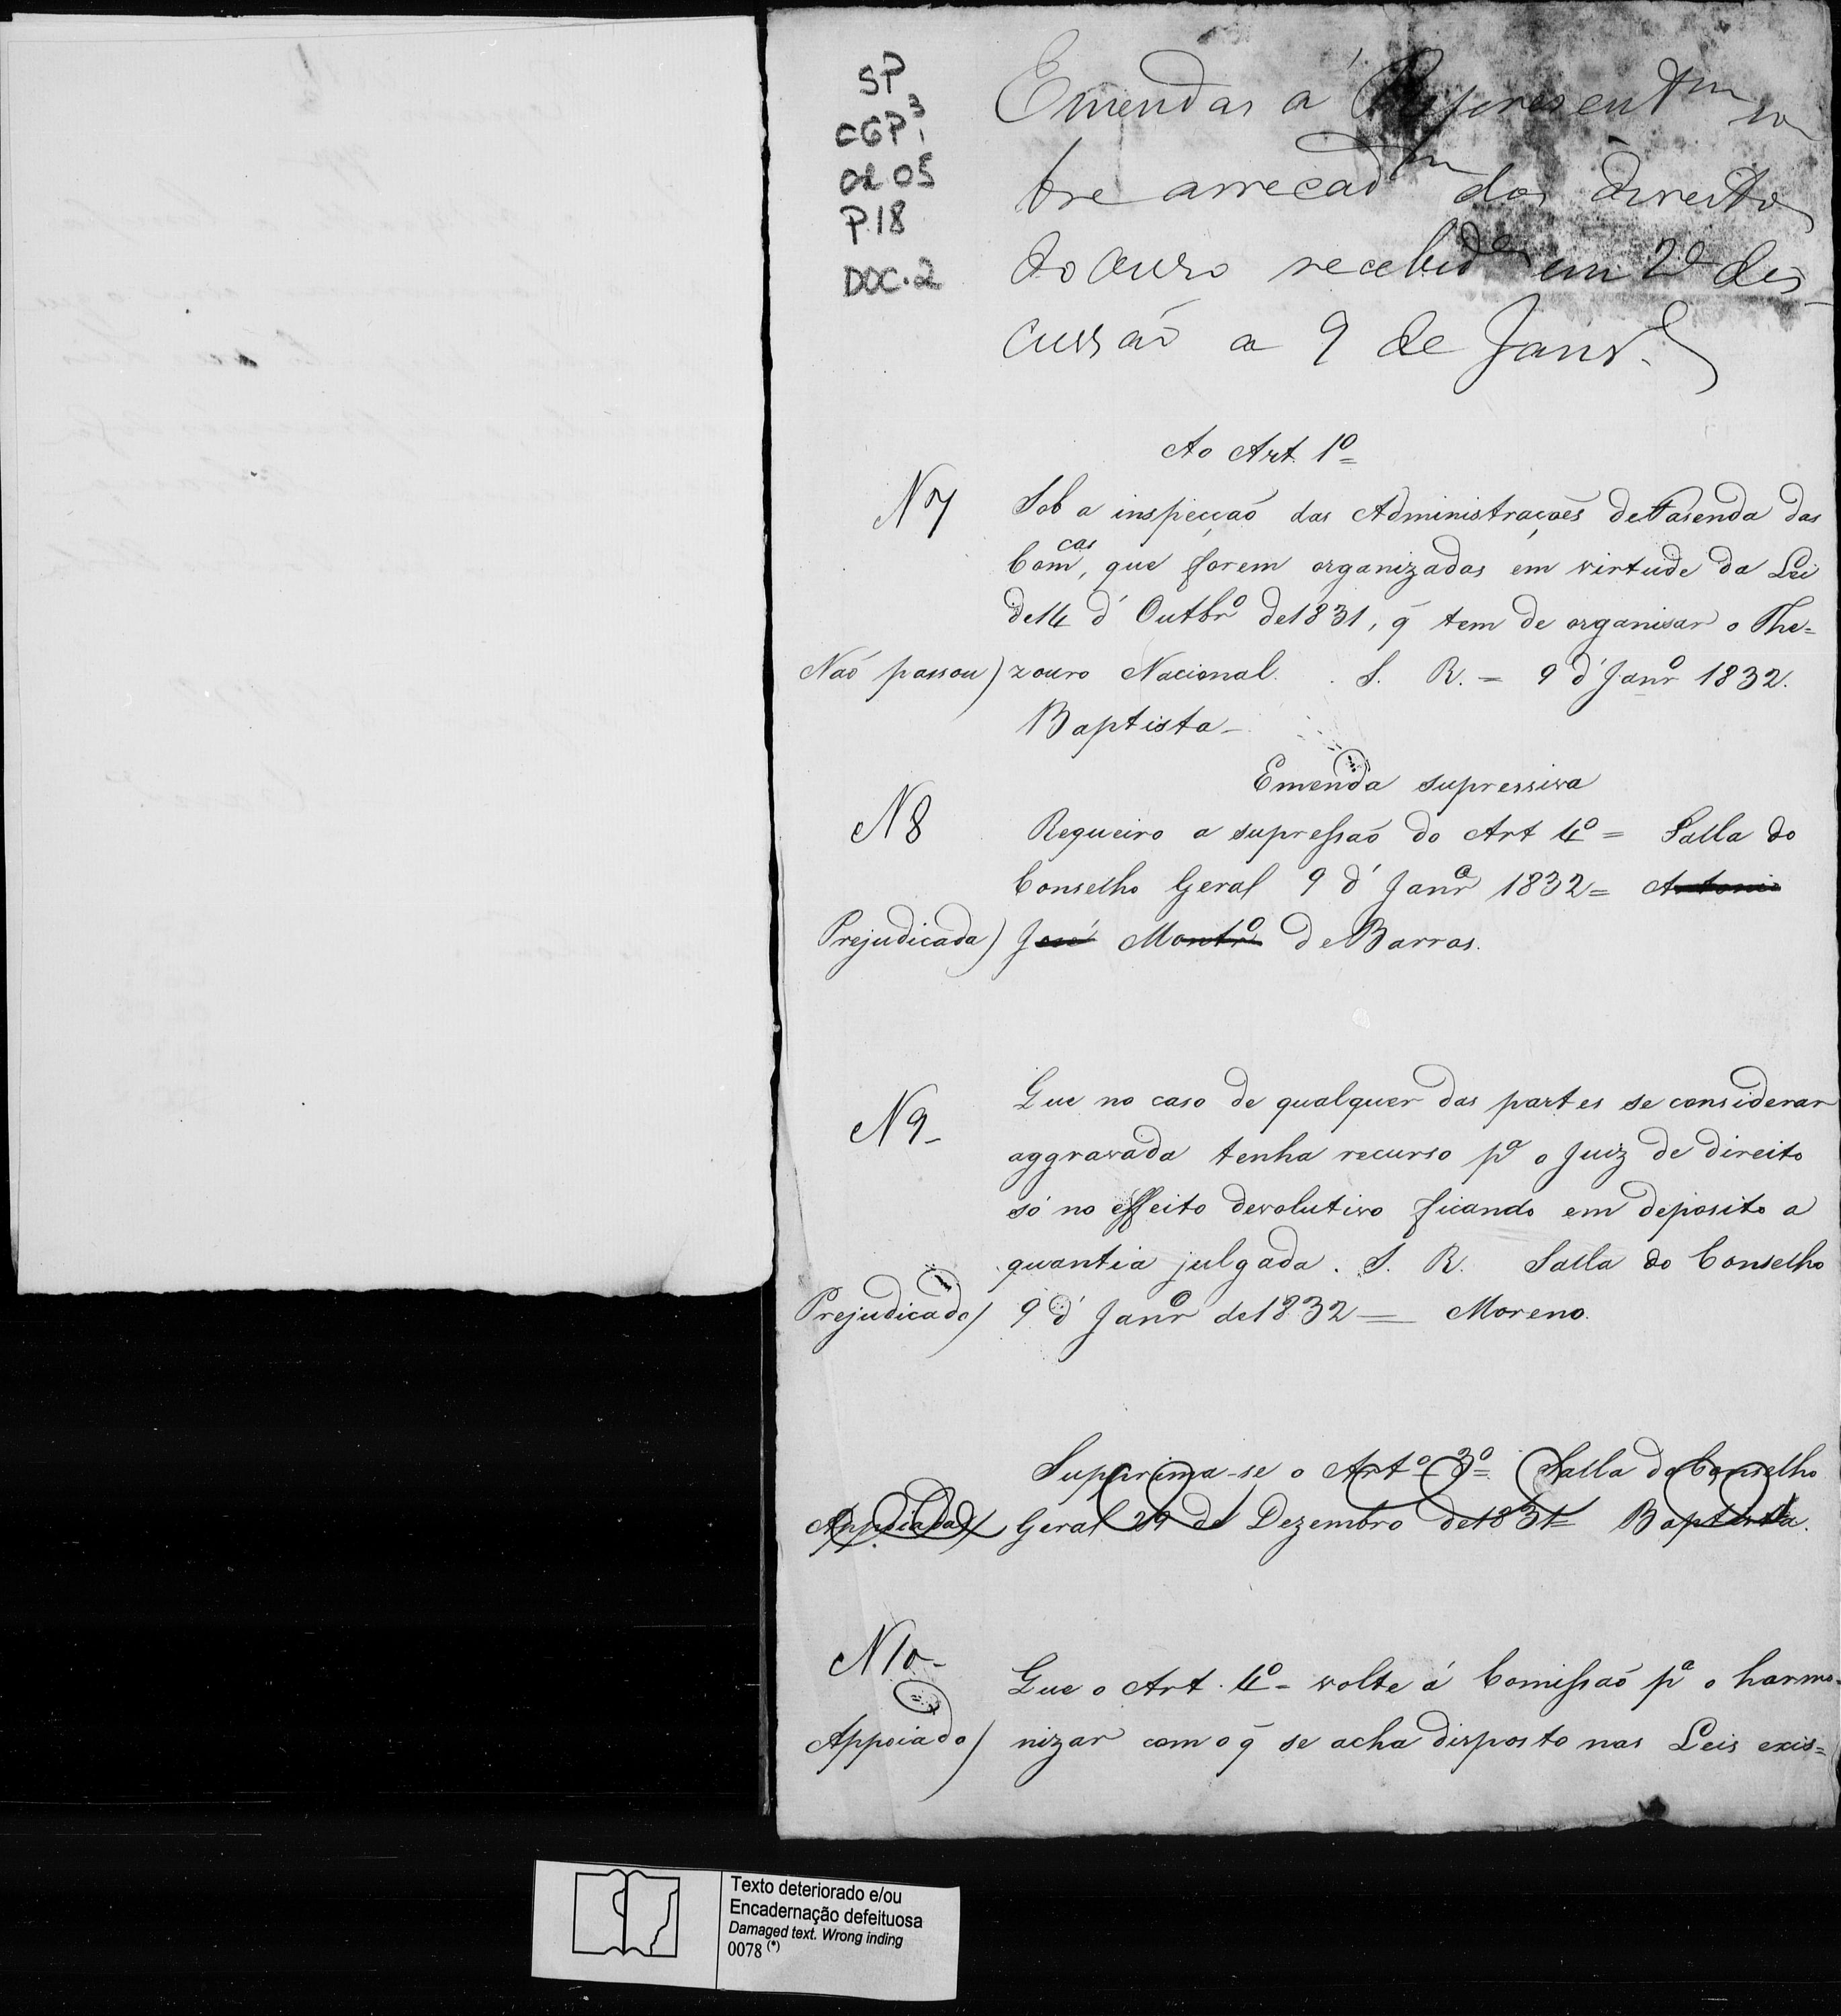 SP
CGP³1
cx 05
P.18
DOC.2
Emendas á Representam so
bre arrecadm dos direitos
do ouro recebidas em 2ª dis
cussão a 9 de Janr.
Ao Art. 1º=
N7
Sob a inspecçaõ das Administraçoẽs de Fasenda das
Comcas, que forem organizadas em virtude da Lei
de 14 d' Outbrº de 1831, q̃ tem de organisar o The=
Naõ passou) zouro Nacional. S. R. = 9 d' Janrº 1832.
Baptista -
Emenda supressiva
N8
Requeiro a supressaõ do Art 4º = Salla do
Conselho Geral 9 d' Janrº 1832 = Antonio
Prejudicada) José Montrº de Barros.
N9_
Que no caso de qualquer das partes se considerar
aggravada tenha recurso pª o Juiz de direito
só no effeito devolutivo ficando em deposito a
quantia julgada. S. R. Salla do Conselho
Prejudicado) 9 d' Janrº de 1832 = Moreno.
Supprima-se o Artº 3º= Salla do Conselho
Appoiada) Geral 29 de Dezembro de 1831= Baptista.
N10-
Que o Art. 4º - volte á Comissaõ pª o harmo-
Appoiado) nizar com o q̃ se acha disposto nas Leis exis=
Texto deteriorado e/ou
Encadernação defeituosa
Damaged text. Wrong inding
0078 (*)